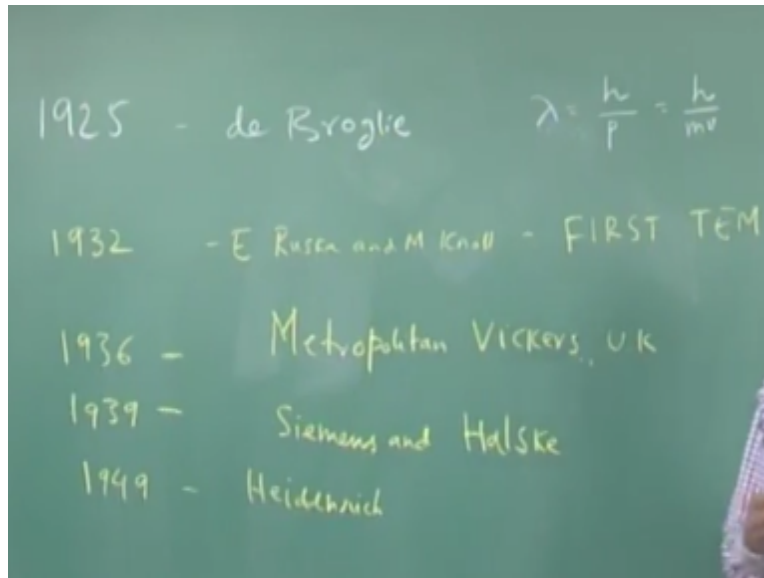 1925 - de Broglie λ = h/p = h/mv
1932 - E Ruska and M Knoll - FIRST TEM
1936 - Metropolitan Vickers, UK
1939 - Siemens and Halske
1949 - Heidenrich